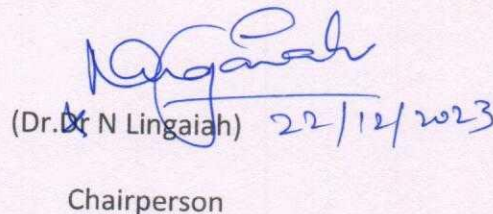 NLingaiah
(Dr.Dr N Lingaiah) 22/12/2023
Chairperson